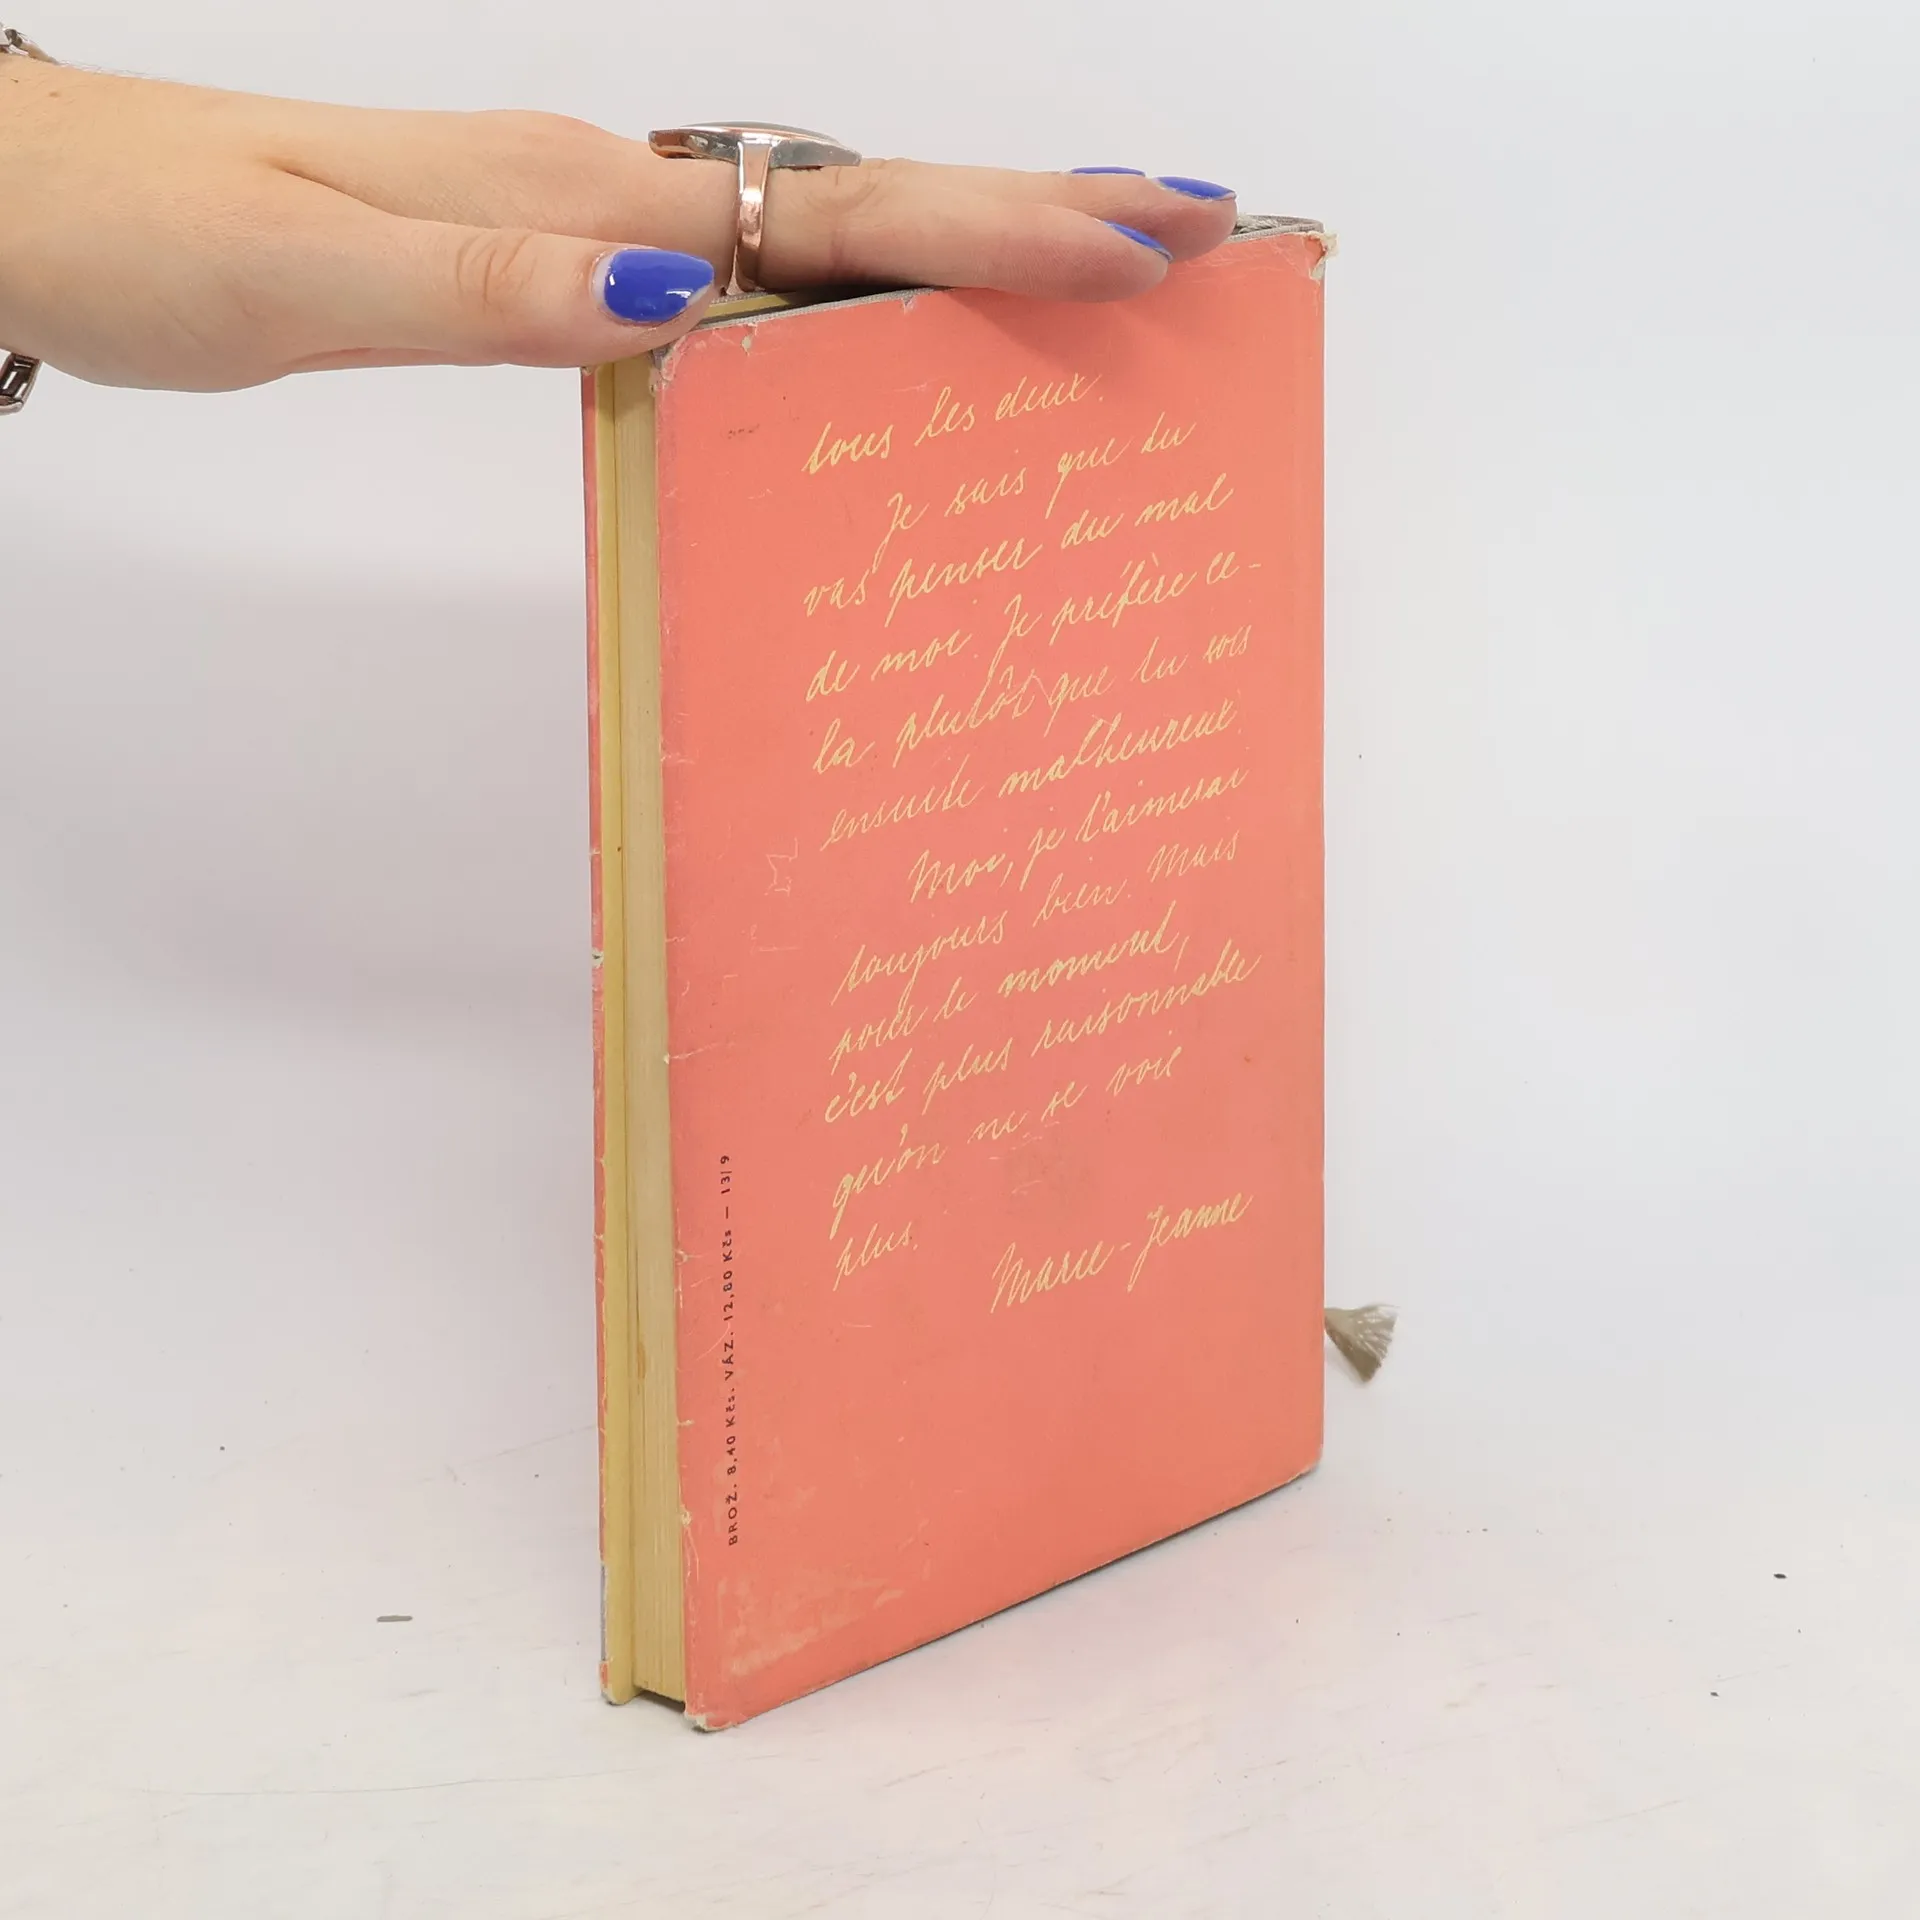 tous les deux.
Je sais que tu
vas penser du mal
de moi. Je préfère ce-
la plutôt que tu sois
ensuite malheureux.
Moi, je t'aimerai
toujours bien. Mais
pour le moment,
c'est plus raisonnable
qu'on ne se voie
plus.
Marie-Jeanne
BROŽ. 8,40 Kčs. VÁZ. 12,80 Kčs — 13/9